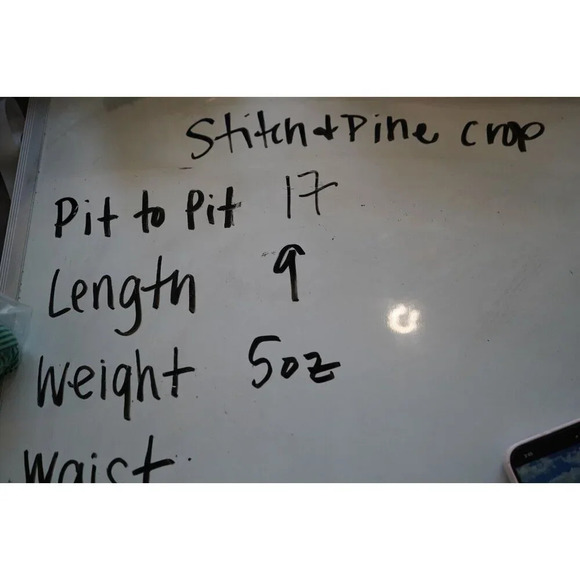 Stitch & Pine crop
Pit to Pit 17
Length 9
Weight 5oz
Waist